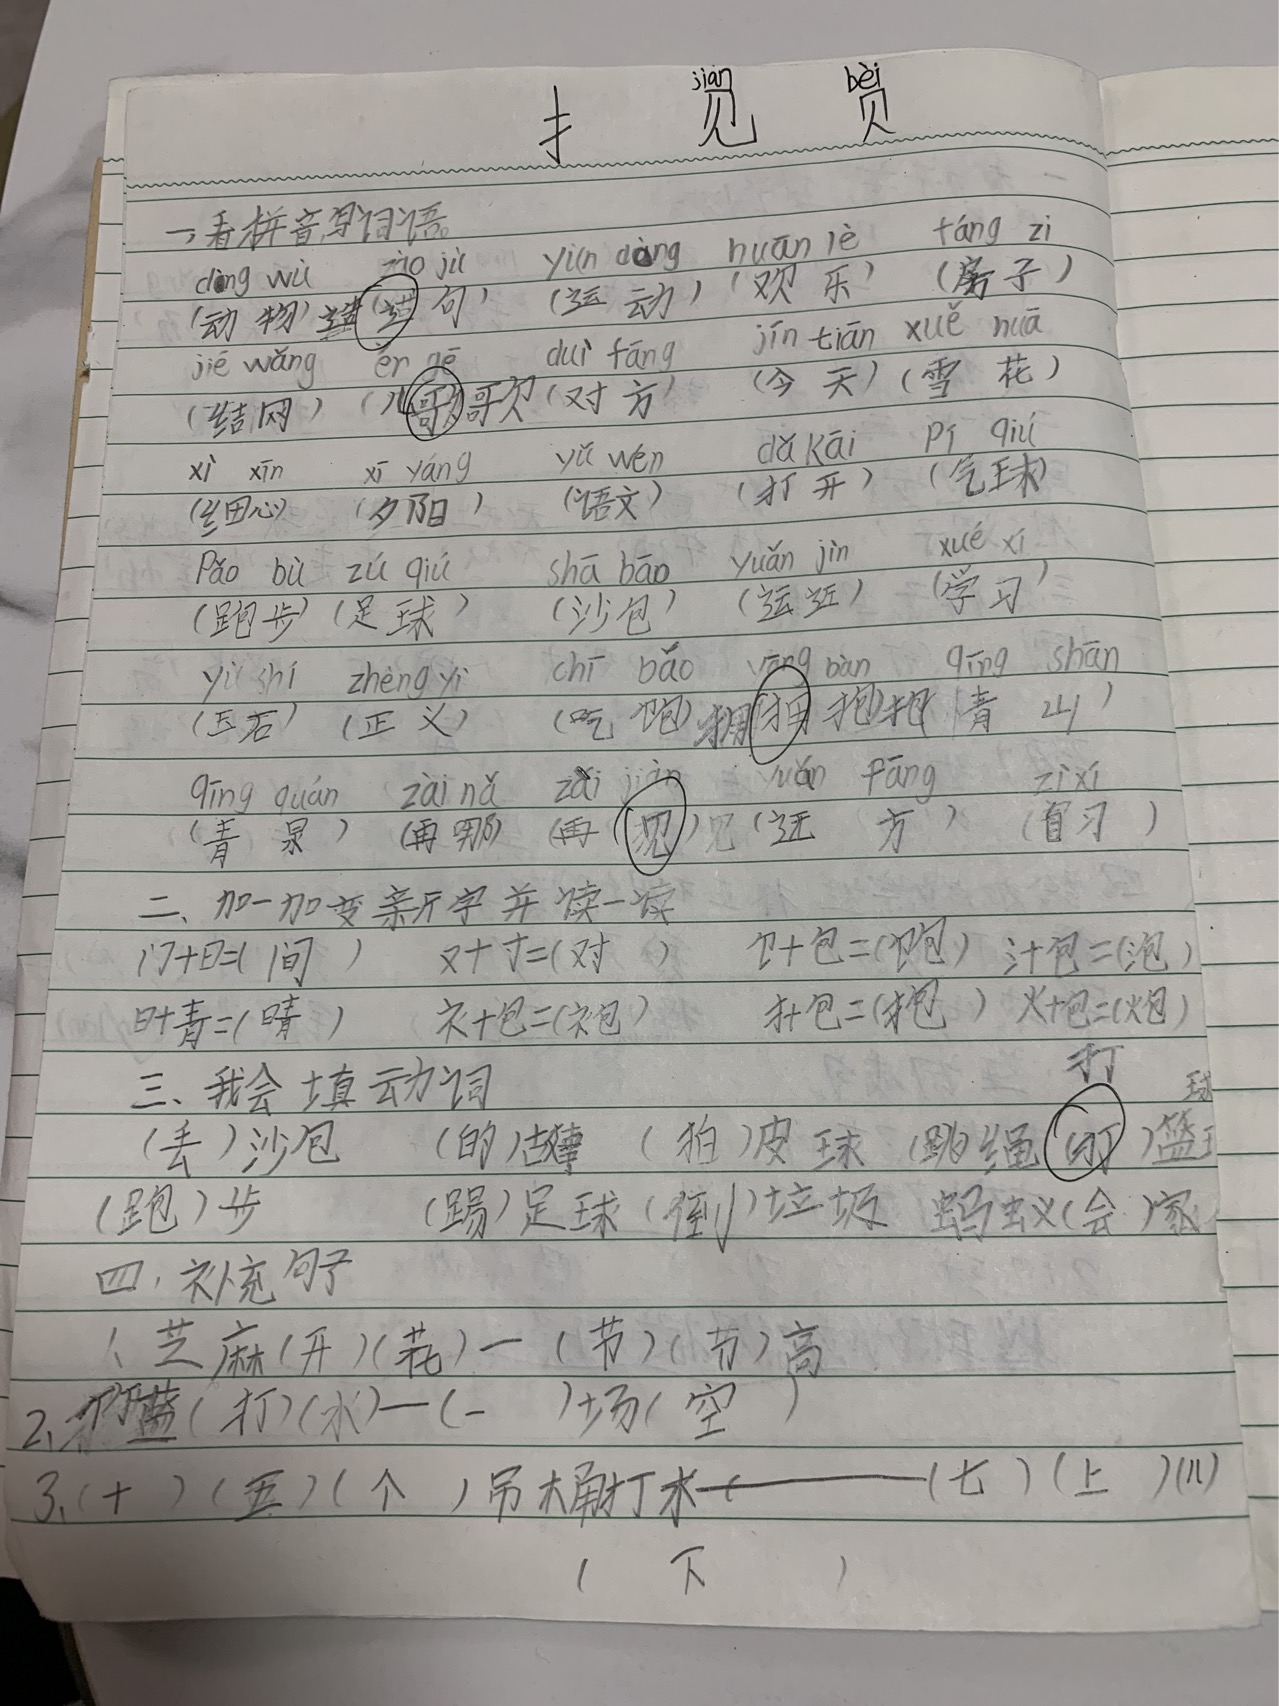 jiàn bèi
扌 见 贝
一、看拼音写词语
dòng wù zào jù yùn dòng huān lè fáng zi
(动物) 造(造句) (运动) (欢乐) (房子)
jié wǎng ér gē duì fāng jīn tiān xuě huā
(结网) (儿歌)歌 (对方) (今天) (雪花)
xì xīn xī yáng yǔ wén dǎ kāi pí qiú
(细心) (夕阳) (语文) (打开) (气球)
pǎo bù zú qiú shā bāo yuǎn jìn xué xí
(跑步) (足球) (沙包) (远近) (学习)
yù shí zhèng yì chī bǎo qīng shān
(玉石) (正义) (吃饱) 拥(拥抱)抱 (青山)
qīng quán zài nǎ zài jiàn yuǎn fāng zì xí
(青泉) (再哪) (再见)见 (远方) (自习)
二、加一加变新字并读一读
门+日=(间) 又+寸=(对) 饣+包=(饱) 氵+包=(泡)
日+青=(晴) 衤+包=(袍) 扌+包=(抱) 火+包=(炮)
三、我会填动词
打 球
(丢)沙包 (的)故事 (拍)皮球 (跳)绳 (打)篮球
(跑)步 (踢)足球 (倒)垃圾 蚂蚁(会)家
四、补充句子
1、芝麻(开)(花)一(节)(节)高
2、竹篮(打)(水)—(一)场(空)
3、(十)(五)(个)吊桶打水——(七)(上)(八)
(下)